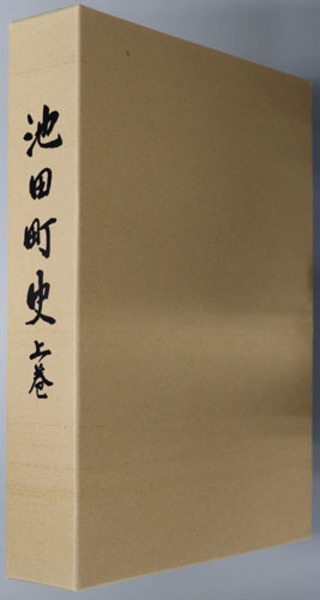 池田町史 上巻